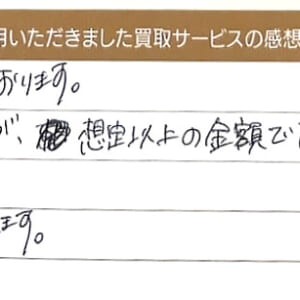 用いただきました買取サービスの感想
おります。
が、想定以上の金額で
ます。